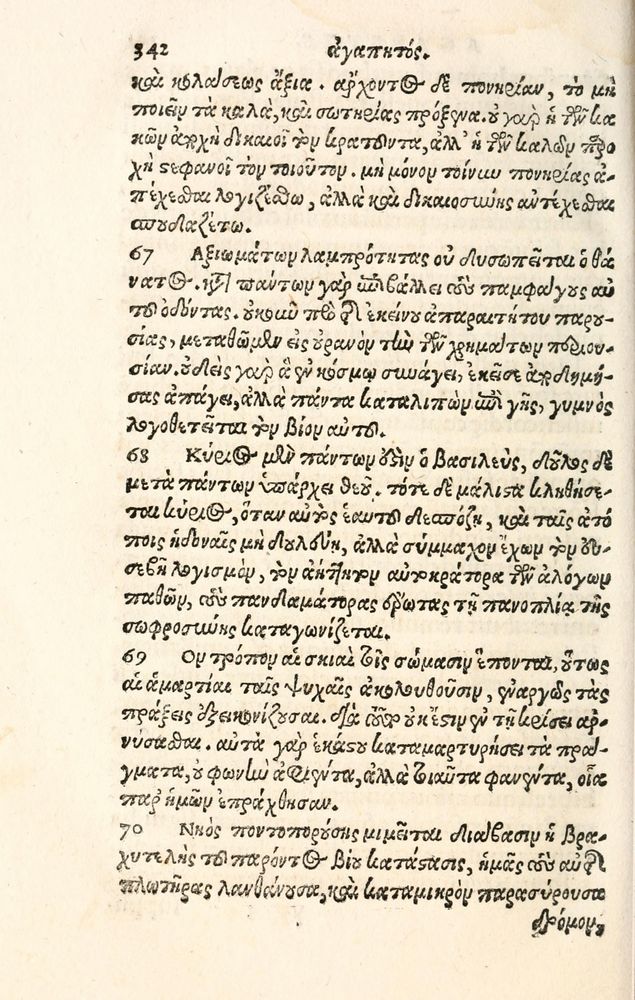 342 ἀγαπητός.
καὶ κολάσεως ἄξια. ἄρχοντος δὲ πονηρίαν, τὸ μὴ
ποιεῖν τὰ καλὰ, καὶ σωτηρίας πρόξενα. οὐ γὰρ ἡ τῶν κα
κῶν ἀρχὴ δικαιοῖ τὸν κρατοῦντα, ἀλλ' ἡ τῶν καλῶν παρο
χὴ στεφανοῖ τὸν τοιοῦτον. μὴ μόνον τοίνυν πονηρίας ἀ-
πέχεσθαι λογιζέσθω, ἀλλὰ καὶ δικαιοσύνης ἀντέχεσθαι
σπουδαζέτω.
67 Ἀξιωμάτων λαμπρότητας οὐ δυσωπεῖται ὁ θά
νατος. κατὰ πάντων γὰρ ἐπιβάλλει τοὺς παμφάγους αὐ
τοῦ ὀδόντας. οὐκοῦν πρὸ τῆς ἐκείνου ἀπαραιτήτου παρου
σίας, μεταθῶμεν εἰς οὐρανὸν τὴν τῶν χρημάτων περιου-
σίαν. οὐδεὶς γὰρ ἃ ἐν κόσμῳ συνάγει, ἐκεῖσε ἀποδημή-
σας ἀπάγει, ἀλλὰ πάντα καταλιπὼν ἐπὶ γῆς, γυμνὸς
λογοθετεῖται τὸν βίον αὐτοῦ.
68 Κύριος μὲν πάντων ἐστὶν ὁ βασιλεύς, δοῦλος δὲ
μετὰ πάντων ὑπάρχει θεοῦ. τότε δὲ μάλιστα κληθήσε-
ται κύριος, ὅταν αὐτὸς ἑαυτοῦ δεσπόζῃ, καὶ ταῖς ἀτό
ποις ἡδοναῖς μὴ δουλεύῃ, ἀλλὰ σύμμαχον ἔχων τὸν εὐ-
σεβῆ λογισμὸν, τὸν ἀήττητον αὐτοκράτορα τῶν ἀλόγων
παθῶν, τοὺς πανδαμάτορας ἔρωτας τῇ πανοπλίᾳ τῆς
σωφροσύνης καταγωνίζεται.
69 Ὃν τρόπον αἱ σκιαὶ τοῖς σώμασιν ἕπονται, οὕτως
αἱ ἁμαρτίαι ταῖς ψυχαῖς ἀκολουθοῦσιν, ἐναργῶς τὰς
πράξεις ἐξεικονίζουσαι. διὰ τοῦτο οὐκ ἔστιν ἐν τῇ κρίσει ἀρ-
νήσασθαι. αὐτὰ γὰρ ἑκάστου καταμαρτυρήσει τὰ πρά-
γματα, οὐ φωνὴν ἀφιέντα, ἀλλὰ τοιαῦτα φανέντα, οἷα
παρ' ἡμῶν ἐπράχθησαν.
70 Νηὸς ποντοπορούσης μιμεῖται διάβασιν ἡ βρα-
χυτελὴς τοῦ παρόντος βίου κατάστασις, ἡμᾶς τοὺς αὐτῆς
πλωτῆρας λανθάνουσα, καὶ καταμικρὸν παρασύρουσα
δρόμον,